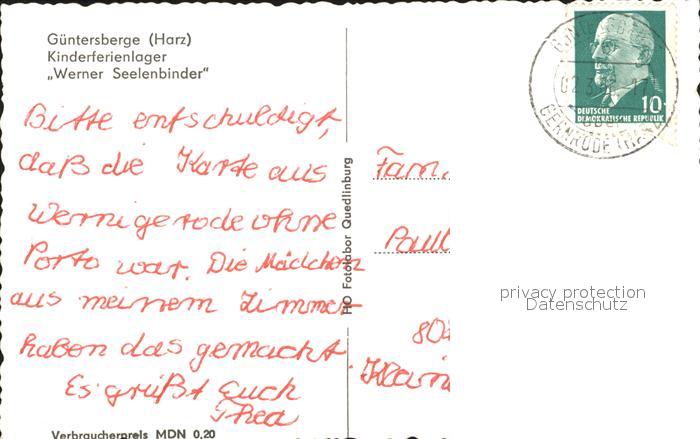 Güntersberge (Harz)
Kinderferienlager
„Werner Seelenbinder“
Bitte entschuldigt,
daß die Karte aus
Wernigerode ohne
Porto war. Die Mädchen
aus meinem Zimmer
haben das gemacht.
Es grüßt Euch
Thea
Verbraucherpreis MDN 0,20
HO Fotolabor Quedlinburg
DEUTSCHE
DEMOKRATISCHE REPUBLIK
10
GERNRODE (HARZ)
Fam.
Paul
80
Klein
privacy protection
Datenschutz